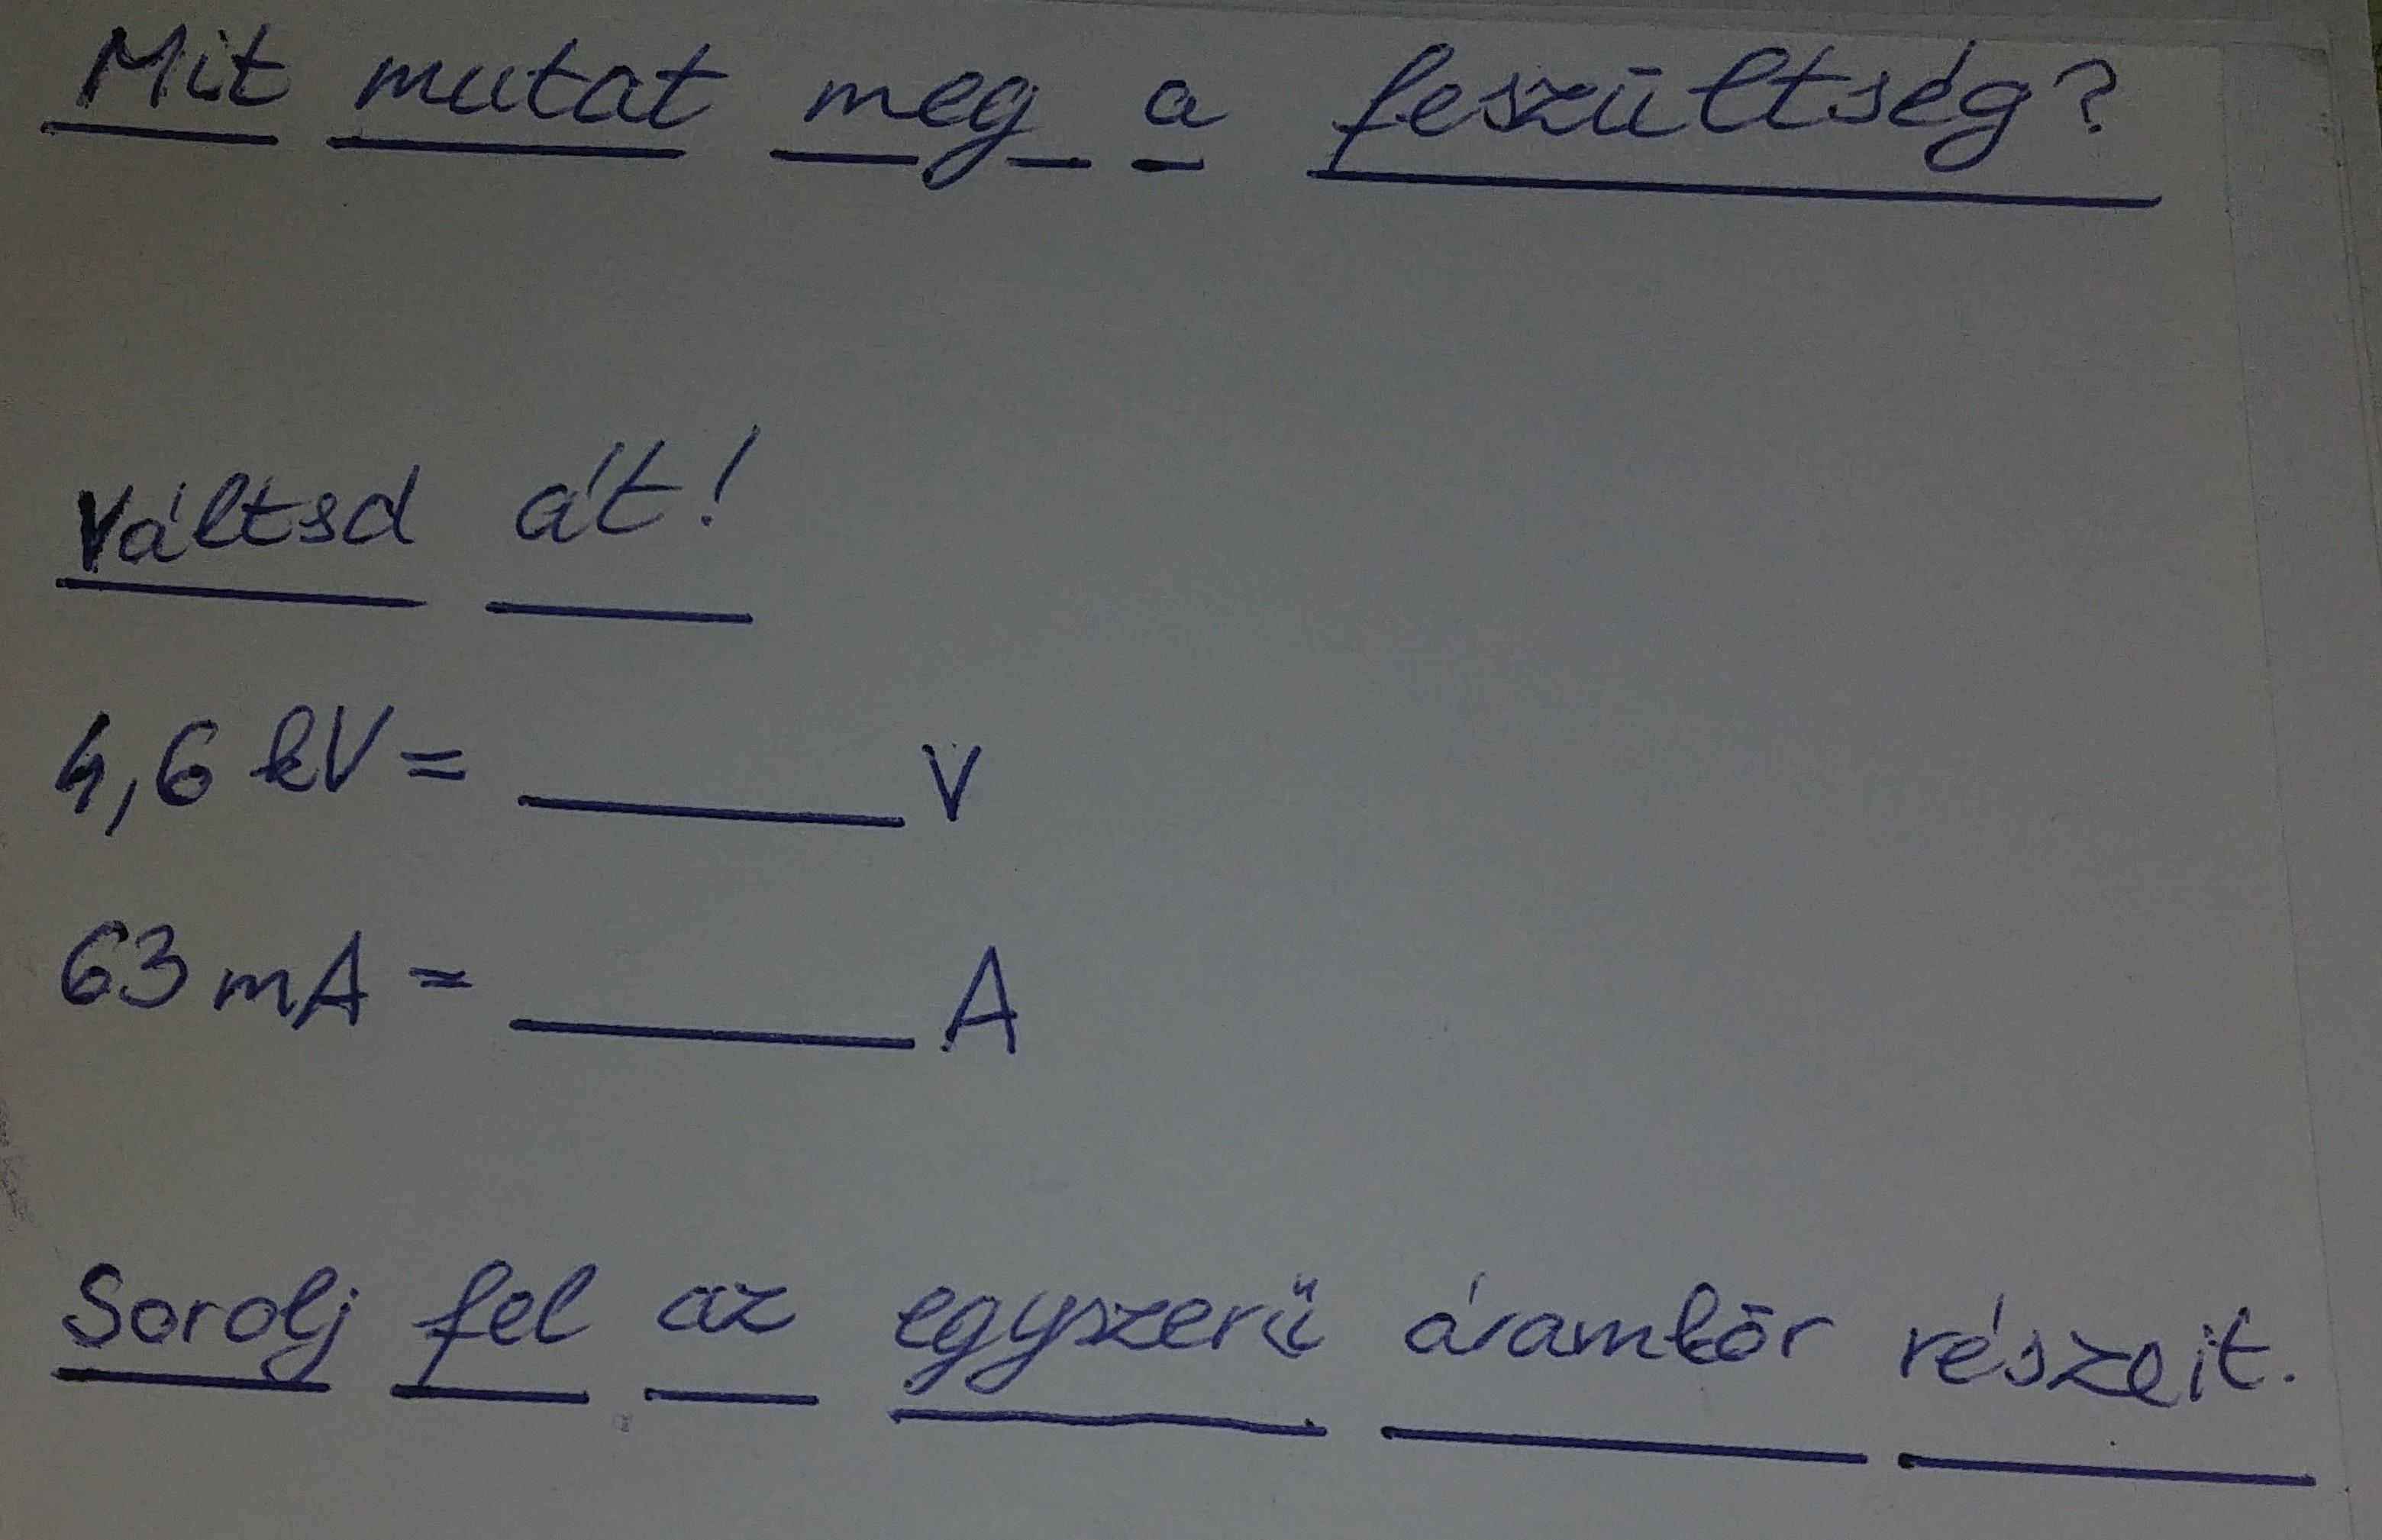 Mit mutat meg a feszültség?
Váltsd át!
4,6 kV = ______ V
63 mA = ______ A
Sorolj fel az egyszerű áramkör részeit.